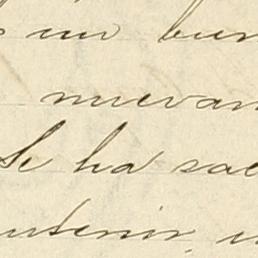 un bu
nuevam
Se ha sac
ntenir, u